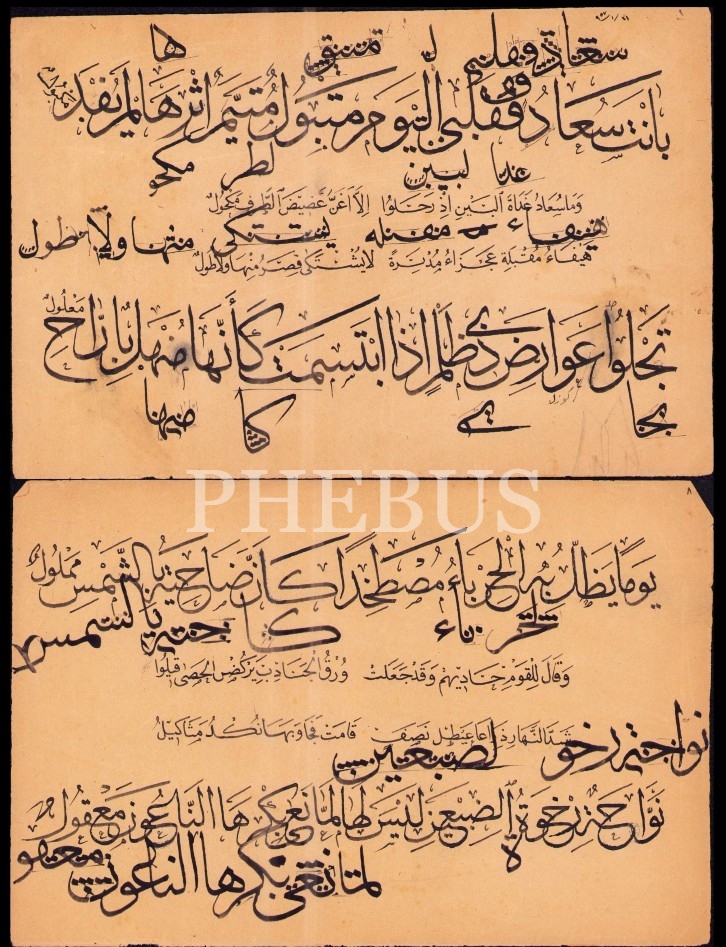 سعاد فقلبي ل ها
بَانَتْ سُعَادُ فَقَلْبِي الْيَوْمَ مَتْبُولُ مُتَيَّمٌ اِثْرَهَا لَمْ يُفْدَ مَكْبُولُ
لبين لطر مكحو
وَمَا سُعَادُ غَدَاةَ الْبَيْنِ اِذْ رَحَلُوا اِلَّا اَغَنُّ غَضِيضُ الطَّرْفِ مَكْحُولُ
هيفاء مقبله يشتكي منها ولا طول
هَيْفَاءُ مُقْبِلَةً عَجْزَاءُ مُدْبِرَةً لَا يُشْتَكَى قِصَرٌ مِنْهَا وَلَا طُولُ
تَجْلُوا عَوَارِضَ ذِي ظَلْمٍ اِذَا ابْتَسَمَتْ كَأَنَّهَا مُنْهَلٌ بِالرَّاحِ مَعْلُولُ
تجا ي كا منها
٨
يَوْمًا يَظَلُّ بِهِ الْحِرْبَاءُ مُصْطَخِدًا كَأَنَّ ضَاحِيَهُ بِالشَّمْسِ مَمْلُولُ
لحر باء كا حيه بالشمس
وَقَالَ لِلْقَوْمِ حَادِيهِمْ وَقَدْ جَعَلَتْ وُرْقُ الْجَنَادِبِ يَرْكُضْنَ الْحَصَى قِيلُوا
شَدَّ النَّهَارِ ذِرَاعَا عَيْطَلٍ نَصَفٍ قَامَتْ فَجَاوَبَهَا نُكْدٌ مَثَاكِيلُ
نواحة رخو لضبعين
نَوَّاحَةٌ رِخْوَةُ الضَّبْعَيْنِ لَيْسَ لَهَا لَمَّا نَعَى بِكْرَهَا النَّاعُونَ مَعْقُولُ
لما نعى بكرها الناعون معقو
PHEBUS